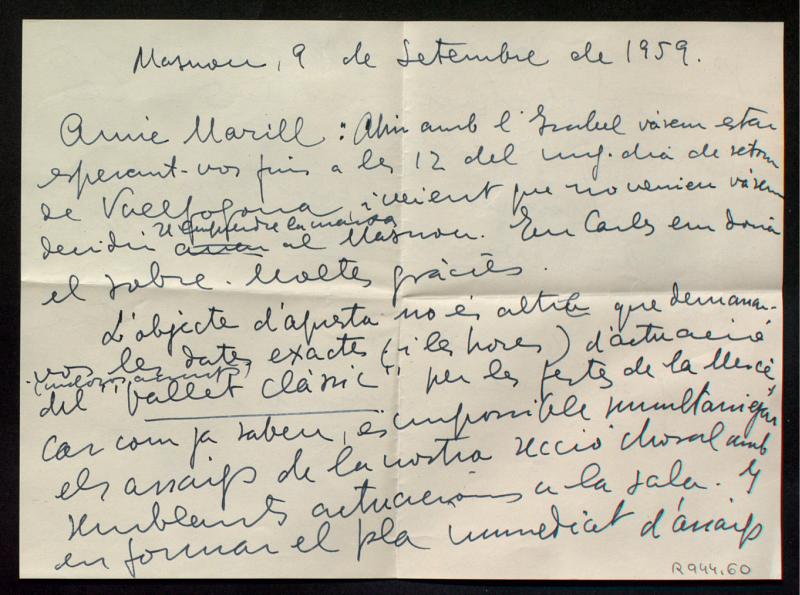 Masnou, 9 de Setembre de 1959.
Amic Marill: Ahir amb l'Isabel vàrem estar
esperant-vos fins a les 12 del mig-dia de retorn
de Vallfogona, i veient que no venieu vàrem
reempendre la marxa
decidir anar al Masnou. En Carles em donà
el sobre. Moltes gràcies.
L'objecte d'aquesta no és altre que demanar-
vos les dates exactes (i les hores) d'actuació
(inclosos assaigs)
del "ballet clàssic" per les festes de la Mercè
car com ja sabeu, és impossible simultaniejar
els assaigs de la nostra secció choral amb
semblants actuacions a la sala. I
en formar el pla immediat d'assaigs
R944.60